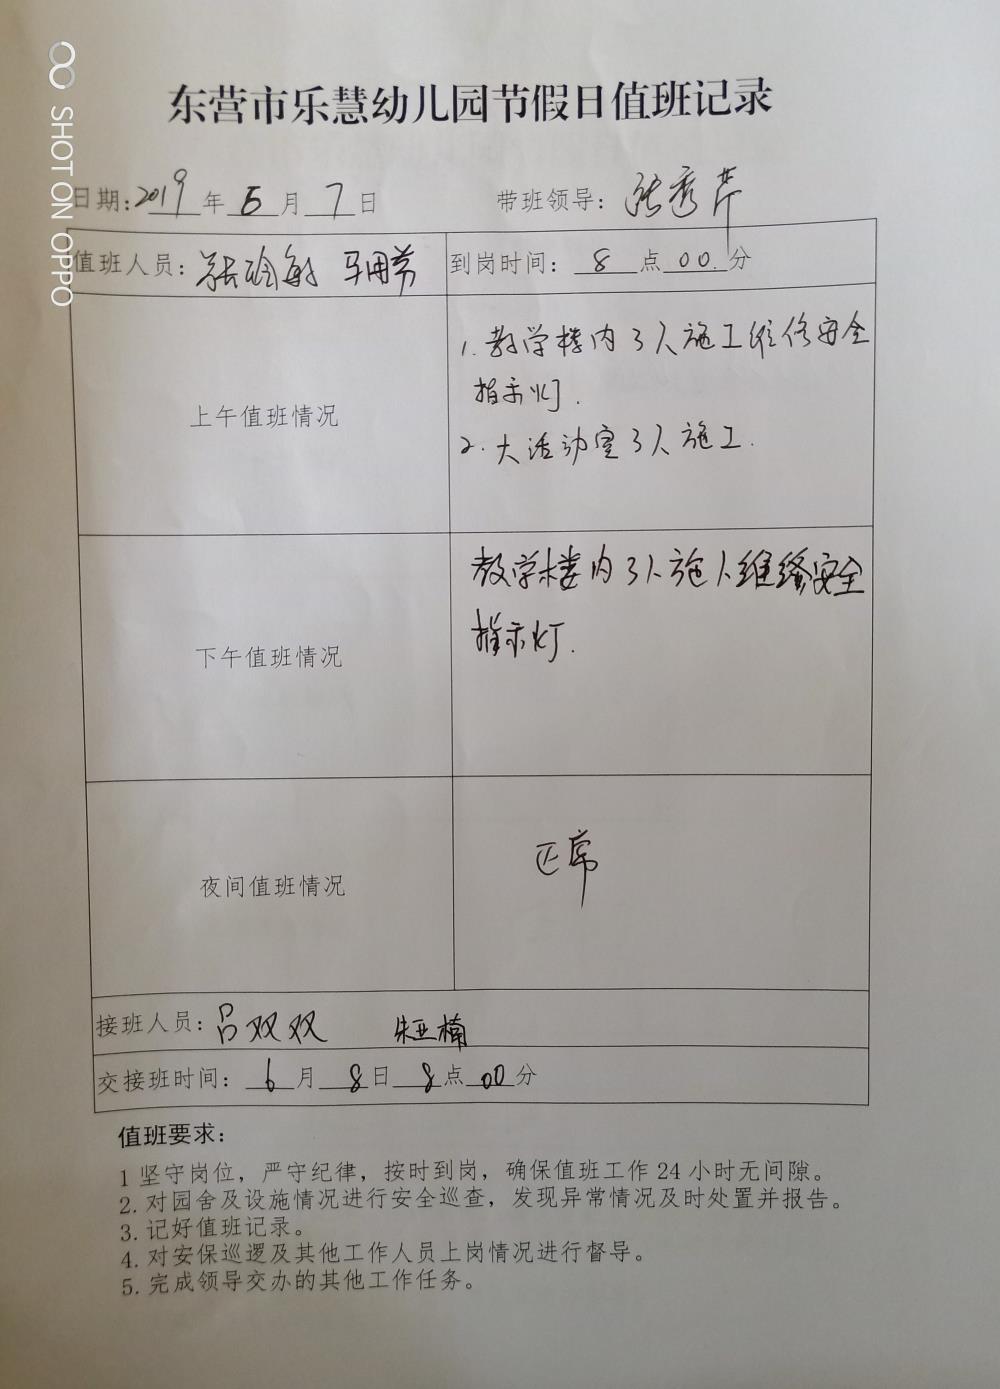 SHOT ON OPPO
东营市乐慧幼儿园节假日值班记录
日期:2019年6月7日 带班领导：张秀芹
值班人员： 到岗时间：8点00.分
上午值班情况
1.教学楼内3人施工维修安全
指示灯.
2.大活动室3人施工.
下午值班情况
教学楼内3人施人维缝安全
指示灯.
夜间值班情况
正常
接班人员：吕双双 朱亚楠
交接班时间：6月8日8点00分
值班要求：
1 坚守岗位，严守纪律，按时到岗，确保值班工作24小时无间隙。
2. 对园舍及设施情况进行安全巡查，发现异常情况及时处置并报告。
3. 记好值班记录。
4. 对安保巡逻及其他工作人员上岗情况进行督导。
5. 完成领导交办的其他工作任务。